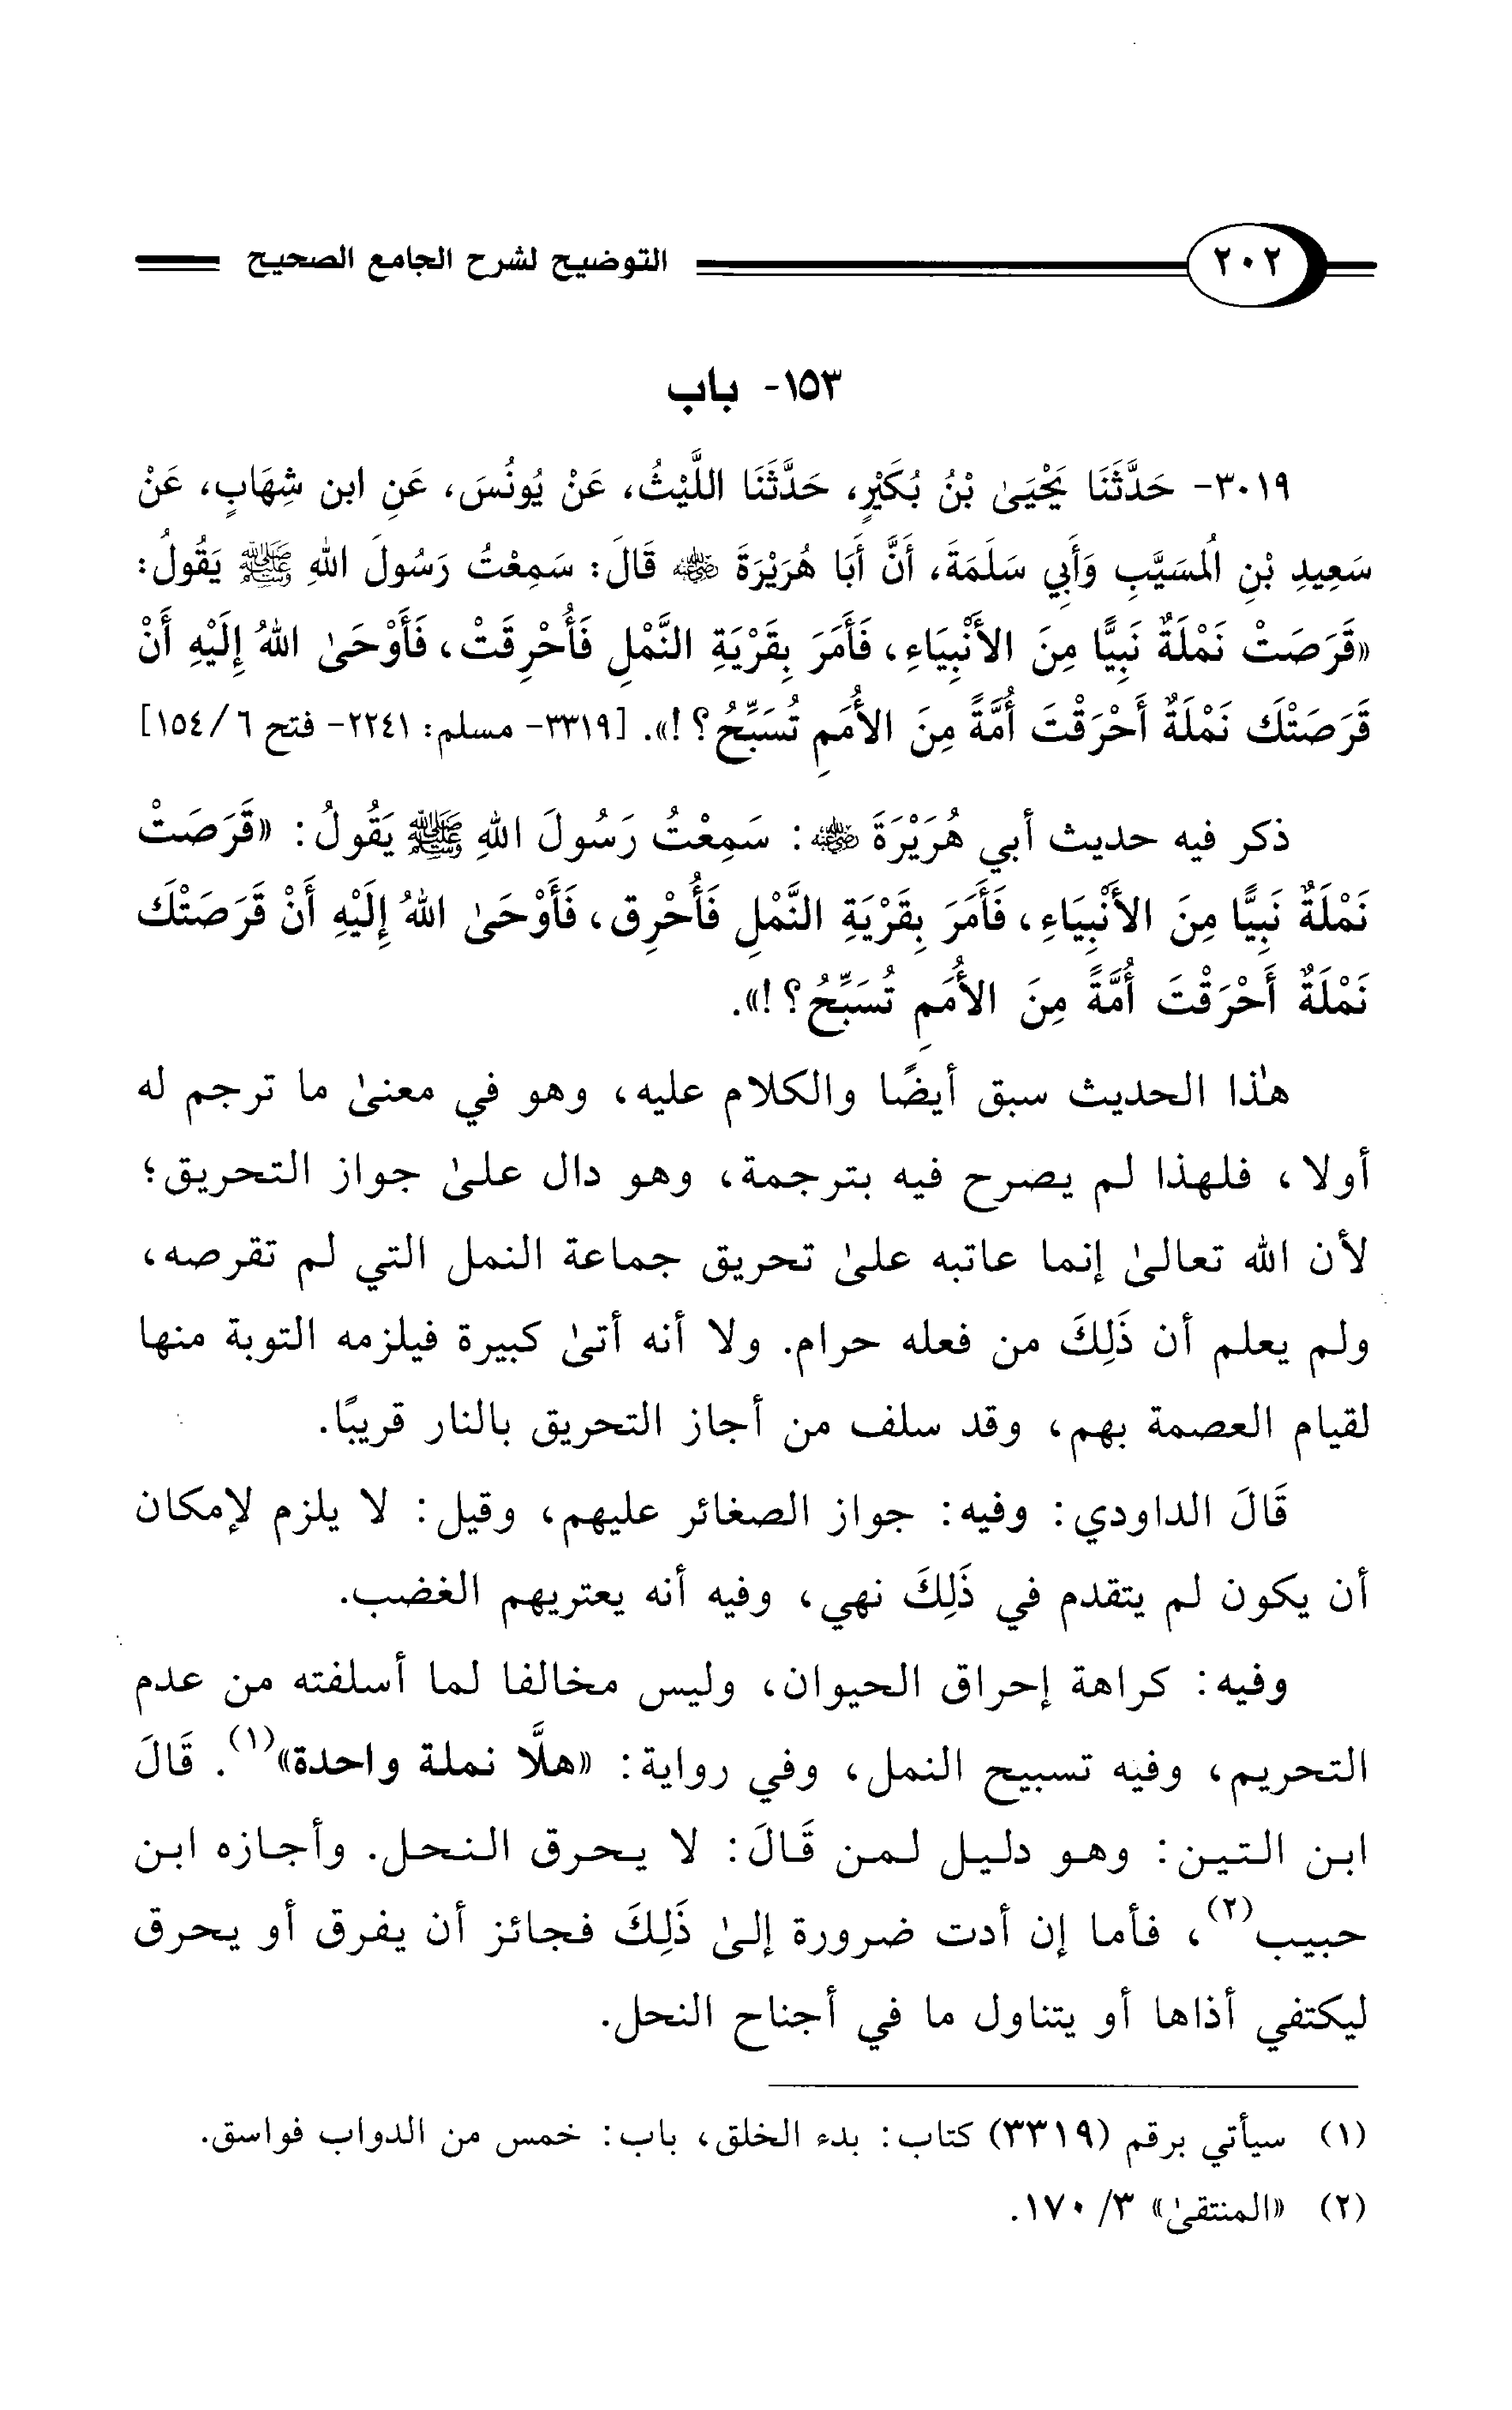 ٢٠٢ التوضيح لشرح الجامع الصحيح
١٥٣- باب
٣٠١٩- حَدَّثَنَا يَحْيَىٰ بْنُ بُكَيْرٍ، حَدَّثَنَا اللَّيْثُ، عَنْ يُونُسَ، عَنِ ابن شِهَابٍ، عَنْ
سَعِيدِ بْنِ المُسَيَّبِ وَأَبِي سَلَمَةَ، أَنَّ أَبَا هُرَيْرَةَ رضي الله عنه قَالَ: سَمِعْتُ رَسُولَ اللهِ ﷺ يَقُولُ:
«قَرَصَتْ نَمْلَةٌ نَبِيًّا مِنَ الأَنْبِيَاءِ، فَأَمَرَ بِقَرْيَةِ النَّمْلِ فَأُحْرِقَتْ، فَأَوْحَىٰ اللهُ إِلَيْهِ أَنْ
قَرَصَتْكَ نَمْلَةٌ أَحْرَقْتَ أُمَّةً مِنَ الأُمَمِ تُسَبِّحُ؟!». [٣٣١٩- مسلم: ٢٢٤١- فتح ٦/ ١٥٤]
ذكر فيه حديث أبي هُرَيْرَةَ رضي الله عنه: سَمِعْتُ رَسُولَ اللهِ ﷺ يَقُولُ: «قَرَصَتْ
نَمْلَةٌ نَبِيًّا مِنَ الأَنْبِيَاءِ، فَأَمَرَ بِقَرْيَةِ النَّمْلِ فَأُحْرِق، فَأَوْحَىٰ اللهُ إِلَيْهِ أَنْ قَرَصَتْكَ
نَمْلَةٌ أَحْرَقْتَ أُمَّةً مِنَ الأُمَمِ تُسَبِّحُ؟!».
هٰذا الحديث سبق أيضًا والكلام عليه، وهو في معنىٰ ما ترجم له
أولا، فلهذا لم يصرح فيه بترجمة، وهو دال علىٰ جواز التحريق؛
لأن الله تعالىٰ إنما عاتبه علىٰ تحريق جماعة النمل التي لم تقرصه،
ولم يعلم أن ذَلِكَ من فعله حرام. ولا أنه أتىٰ كبيرة فيلزمه التوبة منها
لقيام العصمة بهم، وقد سلف من أجاز التحريق بالنار قريبًا.
قَالَ الداودي: وفيه: جواز الصغائر عليهم، وقيل: لا يلزم لإمكان
أن يكون لم يتقدم في ذَلِكَ نهي، وفيه أنه يعتريهم الغضب.
وفيه: كراهة إحراق الحيوان، وليس مخالفا لما أسلفته من عدم
التحريم، وفيه تسبيح النمل، وفي رواية: «هلَّا نملة واحدة»(١). قَالَ
ابن التين: وهو دليل لمن قَالَ: لا يحرق النحل. وأجازه ابن
حبيب(٢)، فأما إن أدت ضرورة إلىٰ ذَلِكَ فجائز أن يفرق أو يحرق
ليكتفي أذاها أو يتناول ما في أجناح النحل.
(١) سيأتي برقم (٣٣١٩) كتاب: بدء الخلق، باب: خمس من الدواب فواسق.
(٢) «المنتقىٰ» ٣/ ١٧٠.